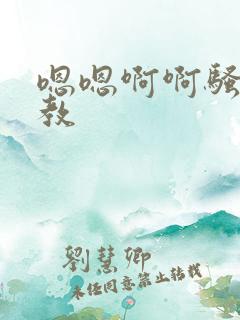 嗯嗯啊啊骚
教
劉慧卿
未经同意禁止转载